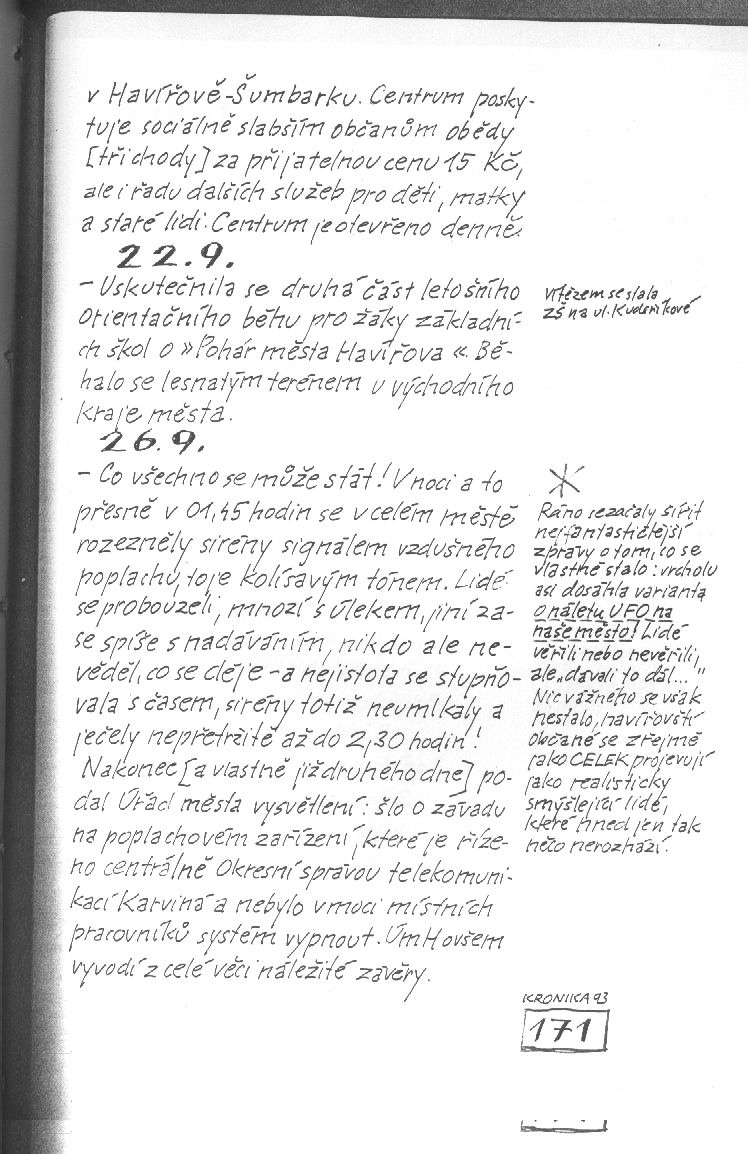 v Havířově-Šumbarku. Centrum posky-
tuje sociálně slabším občanům obědy
[tři chody] za přijatelnou cenu 15 Kč,
ale i řadu dalších služeb pro děti, matky
a staré lidi. Centrum je otevřeno denně.
22.9.
- Uskutečnila se druhá část letošního
Orientačního běhu pro žáky základní-
ch škol o »Pohár města Havířova«. Bě-
halo se lesnatým terénem u východního
kraje města.
vítězem se stala
ZŠ na ul. Kudeříkové
26.9.
- Co všechno se může stát! V noci a to
přesně v 01,45 hodin se v celém městě
rozezněly sirény signálem vzdušného
poplachu, to je kolísavým tónem. Lidé
se probouzeli, mnozí s úlekem, jiní za-
se spíše s nadáváním, nikdo ale ne-
věděl, co se děje - a nejistota se stupňo-
vala s časem, sirény totiž neumlkaly a
ječely nepřetržitě až do 2,30 hodin!
Nakonec [a vlastně již druhého dne] po-
dal Úřad města vysvětlení: šlo o závadu
na poplachovém zařízení, které je říze-
no centrálně Okresní správou telekomuni-
kací Karviná a nebylo v moci místních
pracovníků systém vypnout. ÚmH ovšem
vyvodí z celé věci náležité závěry.
Ráno se začaly šířit
nejfantastičtější
zprávy o tom, co se
vlastně stalo: vrcholu
asi dosáhla varianta
o náletu UFO na
naše město! Lidé
věřili nebo nevěřili,
ale „dávali to dál..."
Nic vážného se však
nestalo, havířovští
občané se zřejmě
jako CELEK projevují
jako realisticky
smýšlející lidé,
které hned jen tak
něco nerozhází.
KRONIKA 93
171